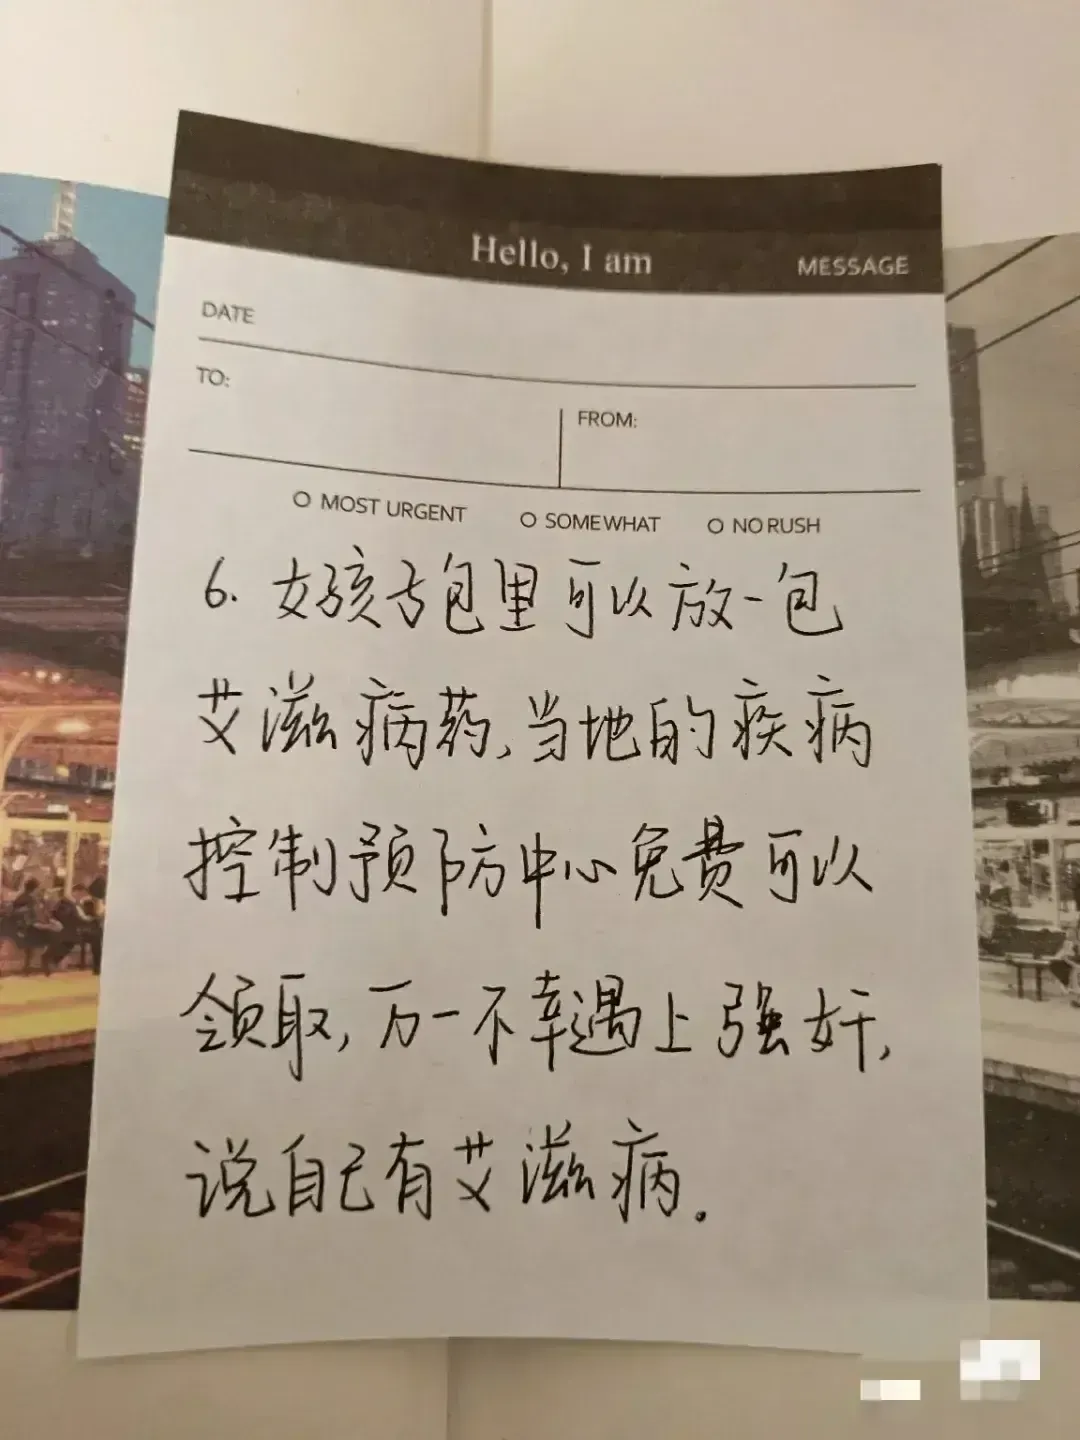 Hello, I am MESSAGE
DATE
TO:
FROM:
O MOST URGENT O SOMEWHAT O NO RUSH
6. 女孩子包里可以放一包
艾滋病药,当地的疾病
控制预防中心免费可以
领取,万一不幸遇上强奸,
说自己有艾滋病.